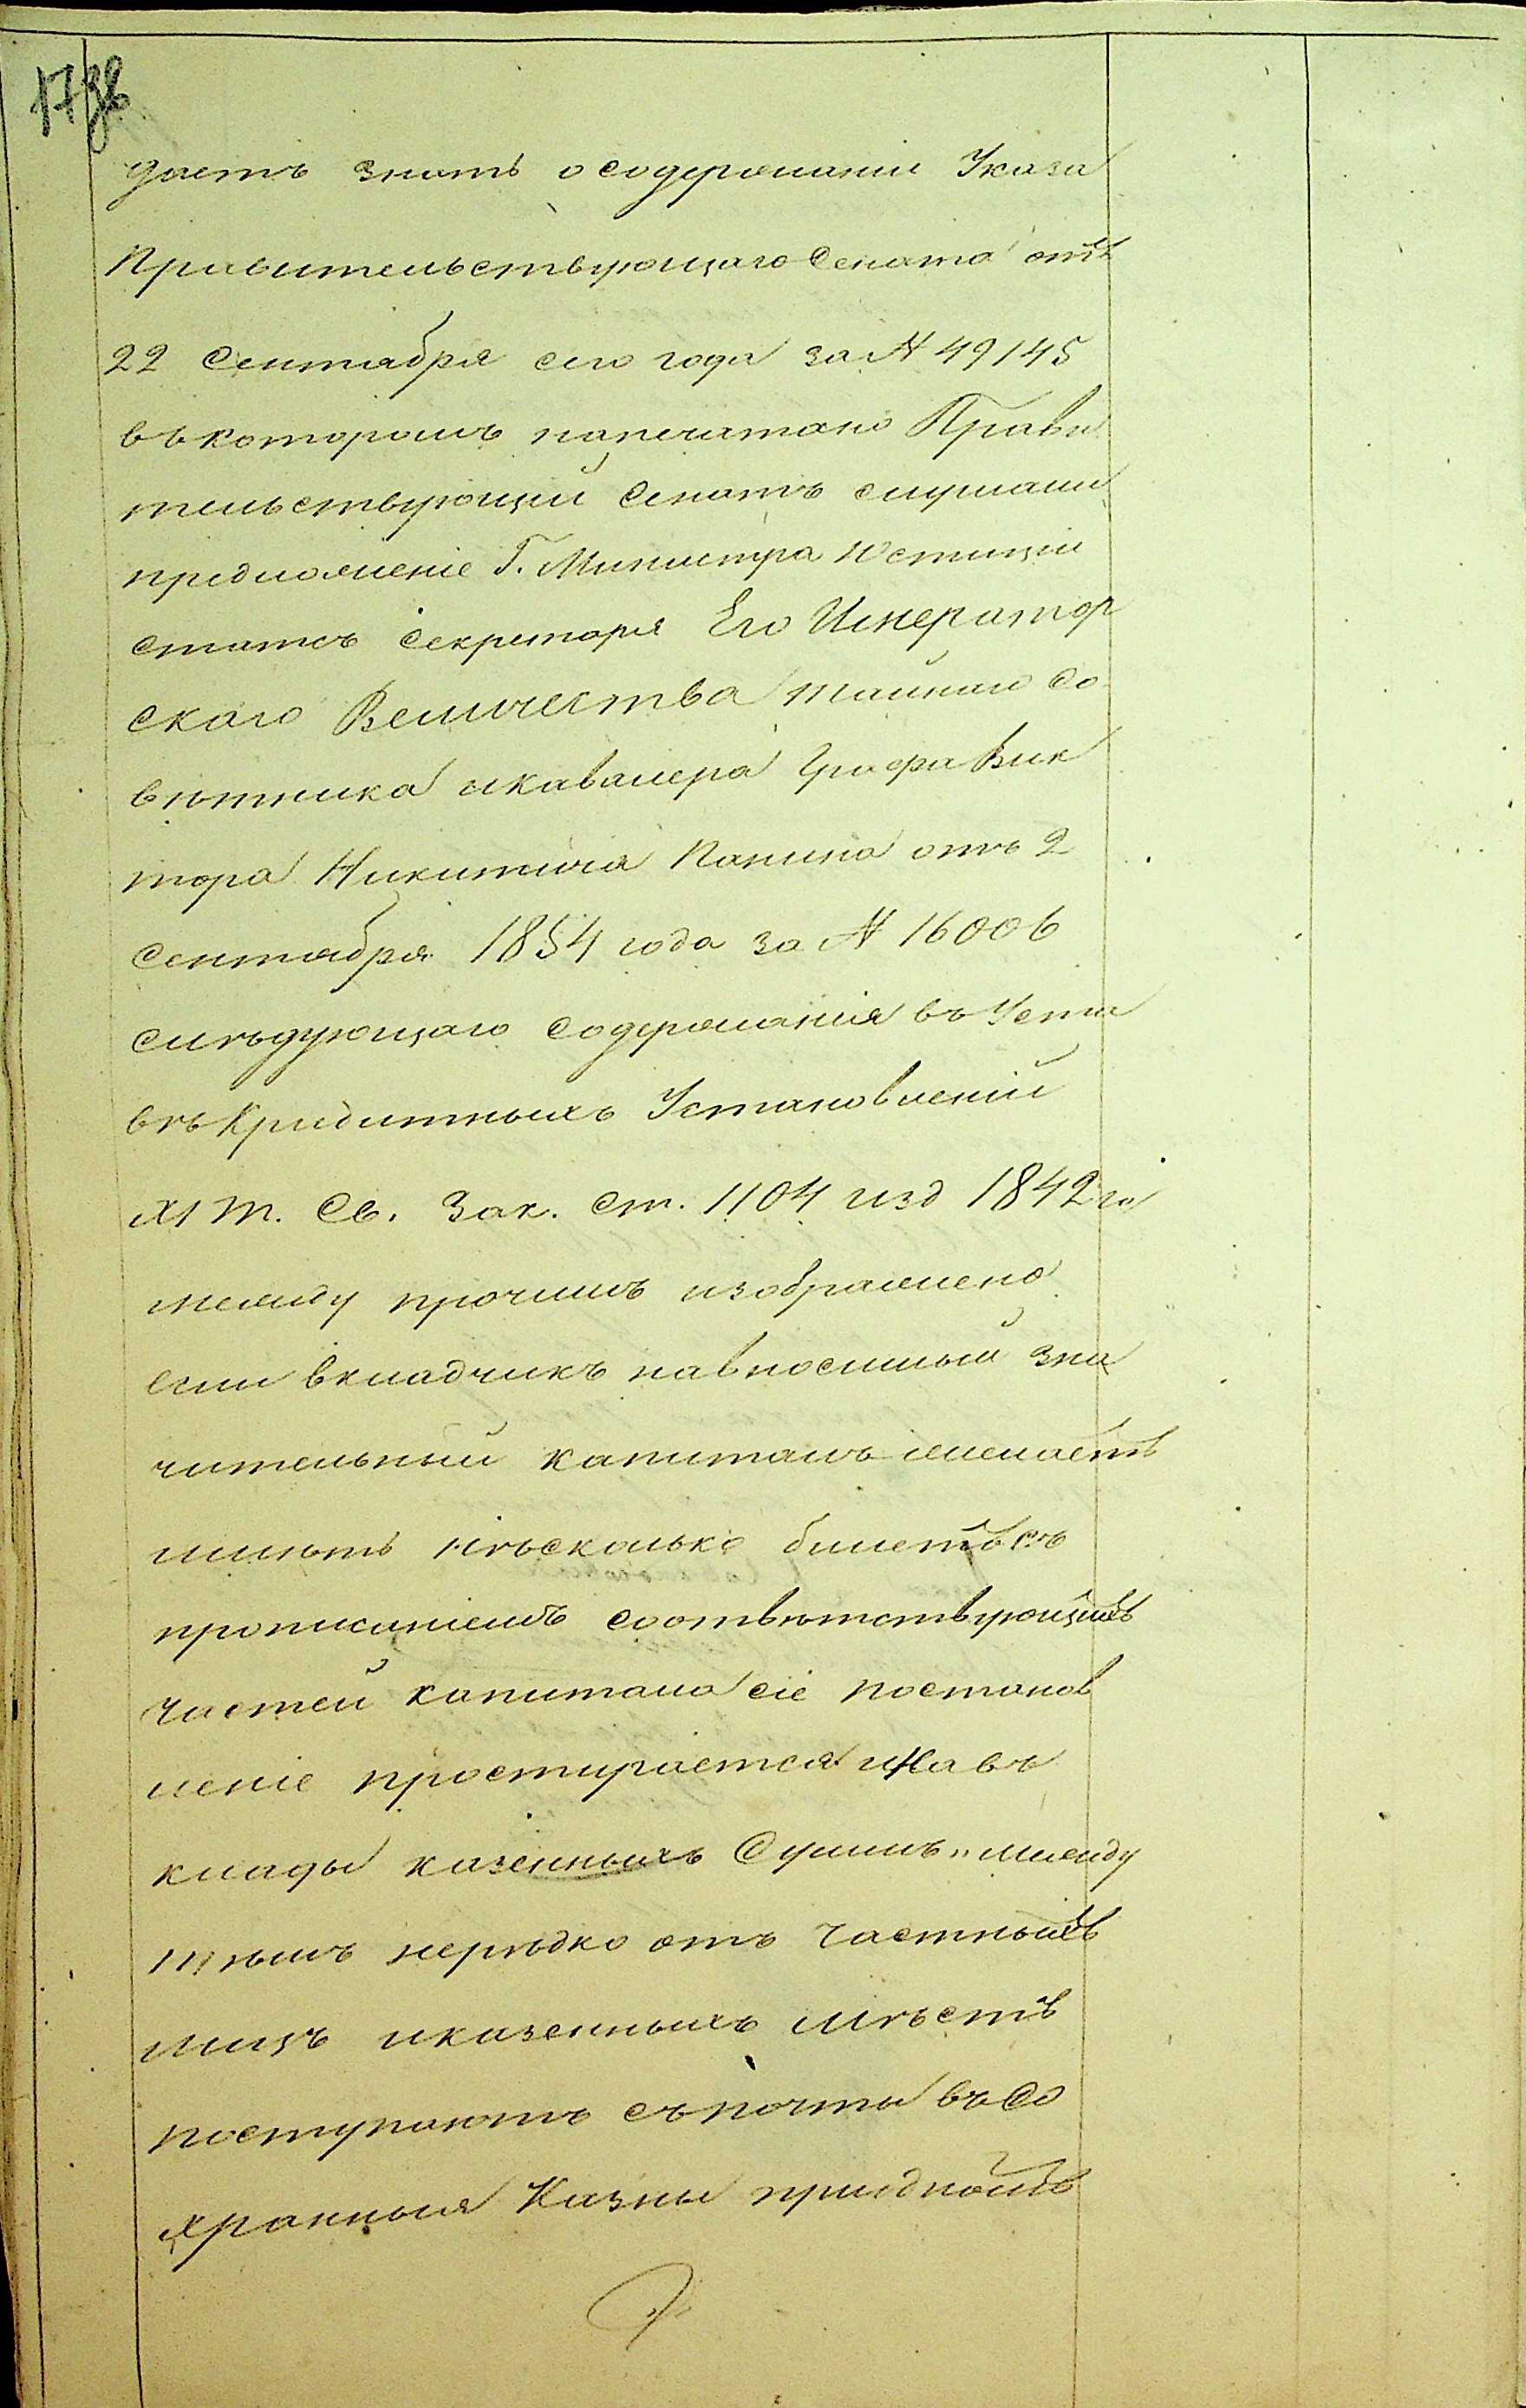 даетъ знать о содержаніи Указа
Правительствующаго Сената отъ
22 Сентября сего года за № 49145
въ которомъ напечатано Прави
тельствующій Сенатъ слушали
предложеніе Г. Министра Юстиціи
статсъ Секретаря Его Император
скаго Величества тайнаго Со
вѣтника и кавалера Графа Вик
тора Никитича Панина отъ 2
Сентября 1854 года за № 16006
слѣдующаго содержанія въ Уста
вѣ Кредитныхъ Установленій
XI т. Св. Зак. ст. 1104 изд 1842 го
между прочимъ изображено
если вкладчикъ на вносимый зна
чительный капиталъ желаетъ
имѣть нѣсколько билетовъ съ
прописаніемъ соотвѣтствующихъ
частей капитала сіе постанов
леніе простирается и на в
клады казенныхъ Суммъ „ между
тѣмъ нерѣдко отъ частныхъ
лицъ и казенныхъ мѣстъ
поступаютъ съ почты въ Со
хранныя Казны при одномъ